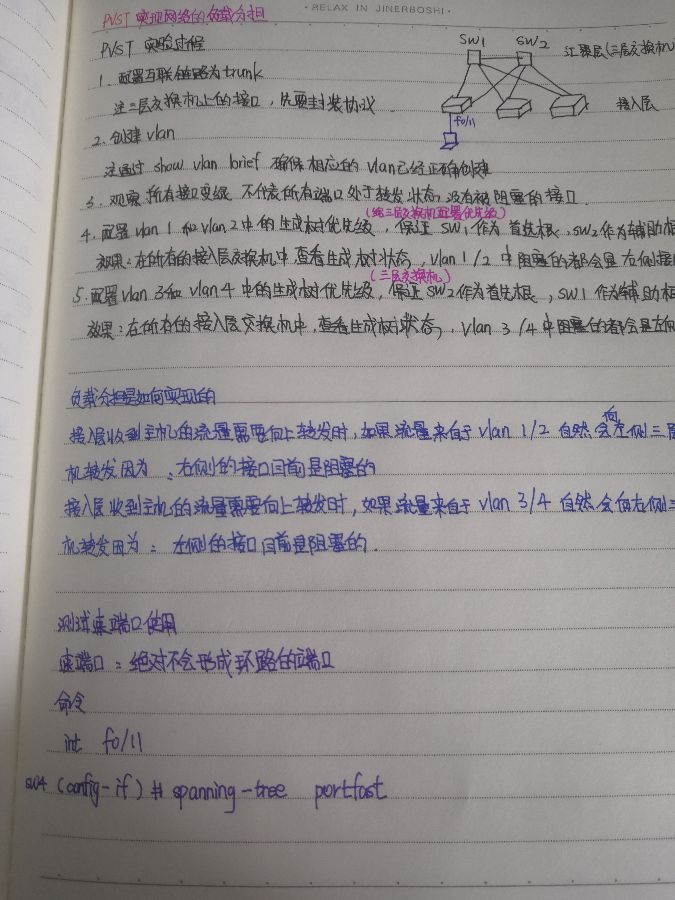 · RELAX IN JINERBOSHI ·
PVST 实现网络的负载分担
PVST 实验过程
SW1 SW2 汇聚层(三层交换机)
1. 配置互联链路为trunk
注三层交换机上的接口,先要封装协议.
接入层
f0/11
2. 创建vlan
注通过 show vlan brief 确保相应的 vlan已经正确创建
3. 观察 所有接口变绿 不代表所有端口处于转发状态,没有被阻塞的接口.
(给三层交换机配置优先级)
4. 配置 vlan 1 和vlan 2 中的生成树优先级,保证 SW1 作为 首选根,SW2 作为辅助根
效果:在所有的接入层交换机中 查看生成树状态,vlan 1/2 中阻塞的都会是 右侧接口
(三层交换机)
5. 配置vlan 3和 vlan 4 中的生成树优先级,保证 SW2作为首先根,SW1 作为辅助根
效果:在所有的接入层交换机中,查看生成树状态,vlan 3/4 中阻塞的都会是左侧
负载分担是如何实现的
接入层收到主机的流量需要向上转发时,如果流量来自于 vlan 1/2 自然会向左侧三层
机转发因为:右侧的接口目前是阻塞的
接入层收到主机的流量需要向上转发时,如果流量来自于 vlan 3/4 自然会向右侧三
机转发因为:左侧的接口目前是阻塞的.
测试速端口使用
速端口:绝对不会形成环路的端口
命令
int f0/11
SW4 (config-if) # spanning-tree portfast